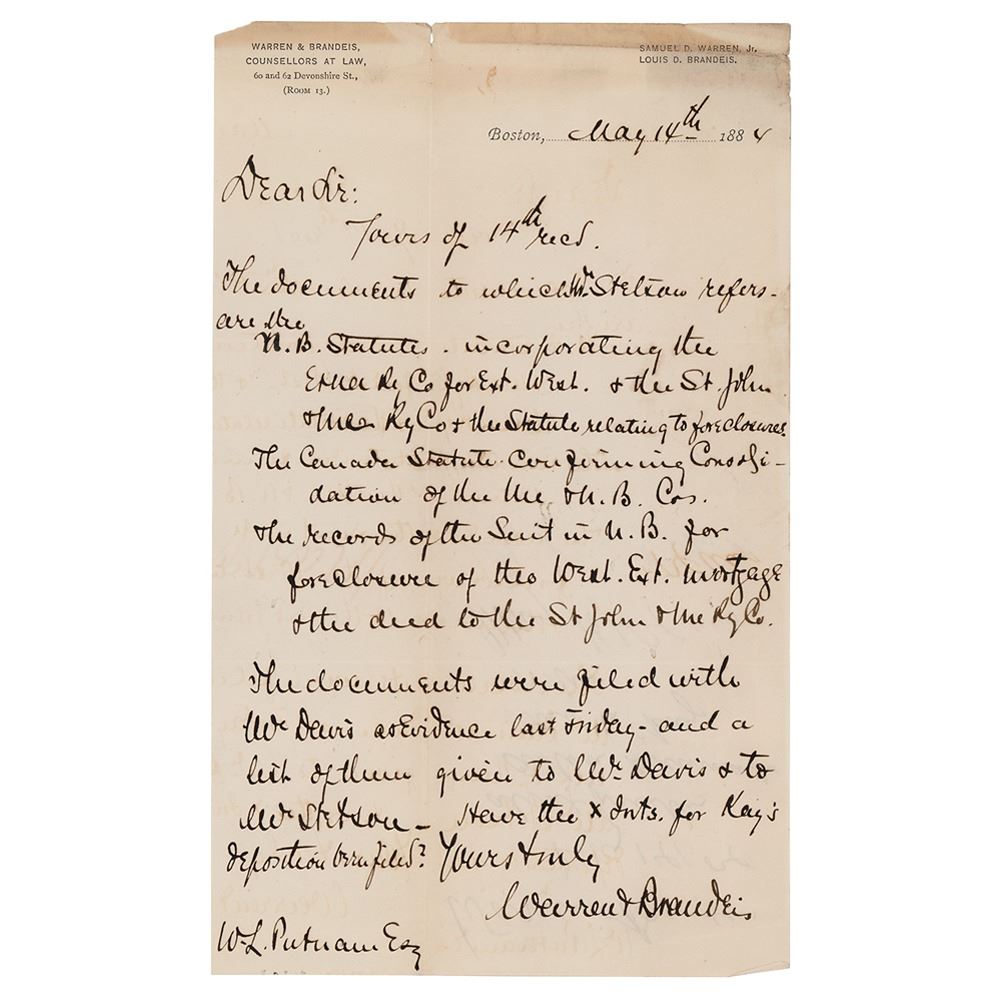 WARREN & BRANDEIS,
COUNSELLORS AT LAW,
60 and 62 Devonshire St.,
(ROOM 13.)
SAMUEL D. WARREN, Jr.
LOUIS D. BRANDEIS.
Boston, May 14th 1884
Dear Sir:
Yours of 14th recd.
The documents to which Mr. Stetson refers-
are the
N.B. Statutes. incorporating the
Ry Co for Ext. West. & the St. John
& Me Ry Co & the Statute relating to foreclosures
The Canada Statute confirming Consoli-
dation of the Me & N.B. Cos.
The records of the Suit in N.B. for
foreclosure of the West. Ext. mortgage
& the deed to the St John & Me Ry Co.
The documents were filed with
Mr Davis as Evidence last Friday - and a
list of them given to Mr. Davis & to
Mr Stetson - Have the X Ints. for Kay's
deposition been filed? Yours truly
Warren & Brandeis
W.L. Putnam Esq